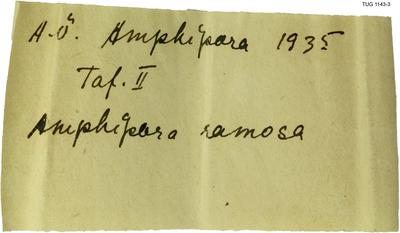 TUG 1143-3
A.Ö. Amphipora 1935
Taf. II
Amphipora ramosa